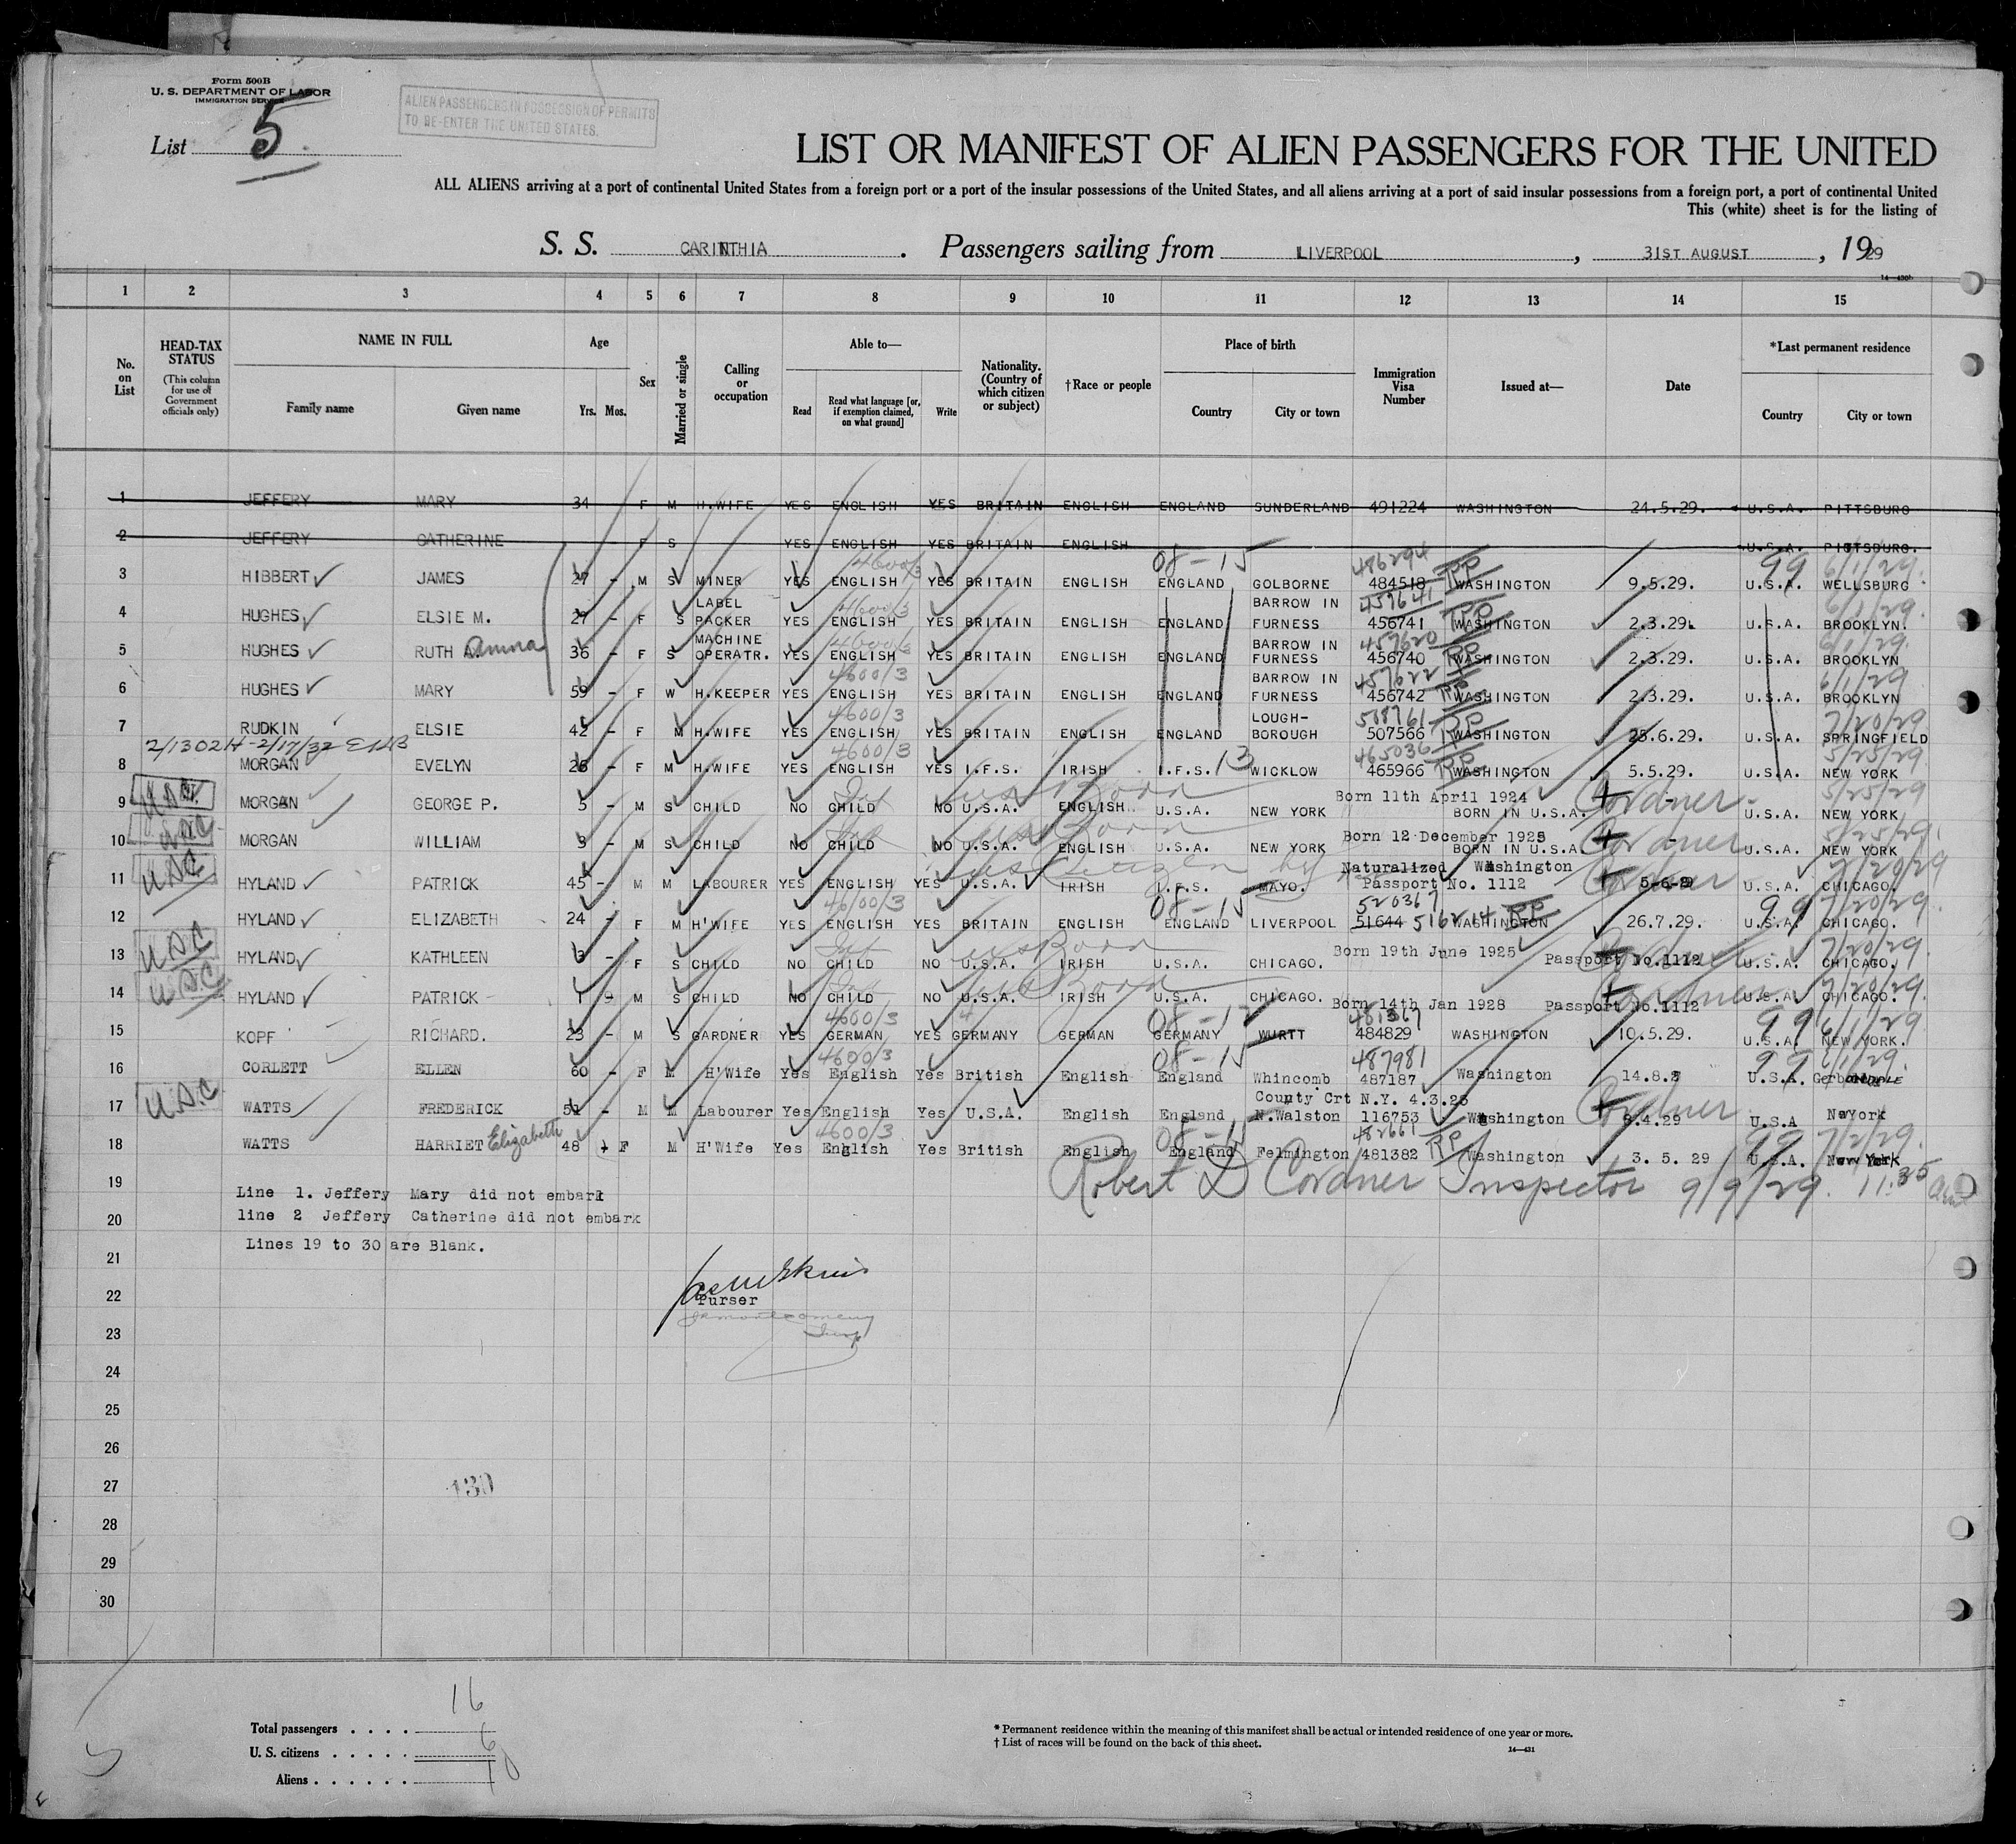 Form 500B
U. S. DEPARTMENT OF LABOR
IMMIGRATION SERVICE
ALIEN PASSENGERS IN POSSESSION OF PERMITS
TO RE-ENTER THE UNITED STATES.
List 5
LIST OR MANIFEST OF ALIEN PASSENGERS FOR THE UNITED
ALL ALIENS arriving at a port of continental United States from a foreign port or a port of the insular possessions of the United States, and all aliens arriving at a port of said insular possessions from a foreign port, a port of continental United
This (white) sheet is for the listing of
S. S. CARINTHIA. Passengers sailing from LIVERPOOL, 31ST AUGUST, 1929
14—430b
1 2 3 4 5 6 7 8 9 10 11 12 13 14 15
No. on List
HEAD-TAX STATUS
(This column for use of Government officials only)
NAME IN FULL
Family name Given name
Age
Yrs. Mos.
Sex
Married or single
Calling or occupation
Able to—
Read
Read what language [or, if exemption claimed, on what ground]
Write
Nationality. (Country of which citizen or subject)
†Race or people
Place of birth
Country City or town
Immigration Visa Number
Issued at—
Date
*Last permanent residence
Country City or town
1 JEFFERY MARY 34 F M H.WIFE YES ENGLISH YES BRITAIN ENGLISH ENGLAND SUNDERLAND 491224 WASHINGTON 24.5.29. U.S.A. PITTSBURG
2 JEFFERY CATHERINE F S YES ENGLISH YES BRITAIN ENGLISH U.S.A. PITTSBURG.
4600/3 08-15 486294 RP 99 6/1/29.
3 HIBBERT JAMES 27 - M S MINER YES ENGLISH YES BRITAIN ENGLISH ENGLAND GOLBORNE 484518 WASHINGTON 9.5.29. U.S.A. WELLSBURG
4600/3 457641 RP 6/1/29.
4 HUGHES ELSIE M. 27 - F S LABEL PACKER YES ENGLISH YES BRITAIN ENGLISH ENGLAND BARROW IN FURNESS 456741 WASHINGTON 2.3.29. U.S.A. BROOKLYN.
4600/3 457620 RP 6/1/29.
5 HUGHES RUTH A. Anna 36 - F S MACHINE OPERATR. YES ENGLISH YES BRITAIN ENGLISH ENGLAND BARROW IN FURNESS 456740 WASHINGTON 2.3.29. U.S.A. BROOKLYN
4600/3 457622 RP 6/1/29
6 HUGHES MARY 59 - F W H.KEEPER YES ENGLISH YES BRITAIN ENGLISH ENGLAND BARROW IN FURNESS 456742 WASHINGTON 2.3.29. U.S.A. BROOKLYN
4600/3 518761 RP 7/20/29
7 RUDKIN ELSIE 42 - F M H.WIFE YES ENGLISH YES BRITAIN ENGLISH ENGLAND LOUGH-BOROUGH 507566 WASHINGTON 25.6.29. U.S.A. SPRINGFIELD
4600/3 13 465036 RP 5/25/29
8 MORGAN EVELYN 26 - F M H.WIFE YES ENGLISH YES I.F.S. IRISH I.F.S. WICKLOW 465966 WASHINGTON 5.5.29. U.S.A. NEW YORK
US Born Born 11th April 1924 Cordner 5/25/29
9 MORGAN GEORGE P. 5 - M S CHILD NO CHILD NO U.S.A. ENGLISH U.S.A. NEW YORK BORN IN U.S.A. U.S.A. NEW YORK
US Born Born 12 December 1925 Cordner 5/25/29.
10 MORGAN WILLIAM 3 - M S CHILD NO CHILD NO U.S.A. ENGLISH U.S.A. NEW YORK BORN IN U.S.A U.S.A. NEW YORK
USC US Citizen by Naturalized Washington Cordner 7/20/29
11 HYLAND PATRICK 45 - M M LABOURER YES ENGLISH YES U.S.A. IRISH I.F.S. MAYO. Passport No. 1112 5-6-2 U.S.A. CHICAGO.
4600/3 08-15 520367 99 7/20/29.
12 HYLAND ELIZABETH 24 - F M H'WIFE YES ENGLISH YES BRITAIN ENGLISH ENGLAND LIVERPOOL 51644 516214 RP WASHINGTON 26.7.29. U.S.A. CHICAGO.
USC US Born Born 19th June 1925 Cordner 7/20/29.
13 HYLAND KATHLEEN 3 - F S CHILD NO CHILD NO U.S.A. IRISH U.S.A. CHICAGO. Passport No.1112 U.S.A. CHICAGO.
USC US Born Cordner 7/20/29.
14 HYLAND PATRICK 1 9 M S CHILD NO CHILD NO U.S.A. IRISH U.S.A. CHICAGO. Born 14th Jan 1928 Passport No.1112 U.S.A. CHICAGO.
4600/3 481367 99 6/1/29
15 KOPF RICHARD. 23 - M S GARDNER YES GERMAN YES GERMANY GERMAN GERMANY WURTT 484829 WASHINGTON 10.5.29. U.S.A. NEW YORK.
4600/3 08-15 487981 99 6/1/29.
16 CORLETT ELLEN 60 - F M H'Wife Yes English Yes British English England Whincomb 487187 Washington 14.8. U.S.A.
USC County Crt N.Y. 4.3.26 Cordner
17 WATTS FREDERICK 51 - M M Labourer Yes English Yes U.S.A. English England N.Walston 116753 Washington 9.4.29 U.S.A New York
4600/3 08-15 482661 99 7/2/29.
18 WATTS HARRIET Elizabeth 48 F M H'Wife Yes English Yes British English England Felmington 481382 RP Washington 3. 5. 29 U.S.A. New York
Robert D Cordner Inspector 9/9/29. 11.35 am
19 Line 1. Jeffery Mary did not embark
20 line 2 Jeffery Catherine did not embark
21 Lines 19 to 30 are Blank.
22 Purser
23
24
25
26
27 130
28
29
30
Total passengers . . . . 16
U. S. citizens . . . . . 6
Aliens . . . . . . 10
* Permanent residence within the meaning of this manifest shall be actual or intended residence of one year or more.
† List of races will be found on the back of this sheet.
14—431